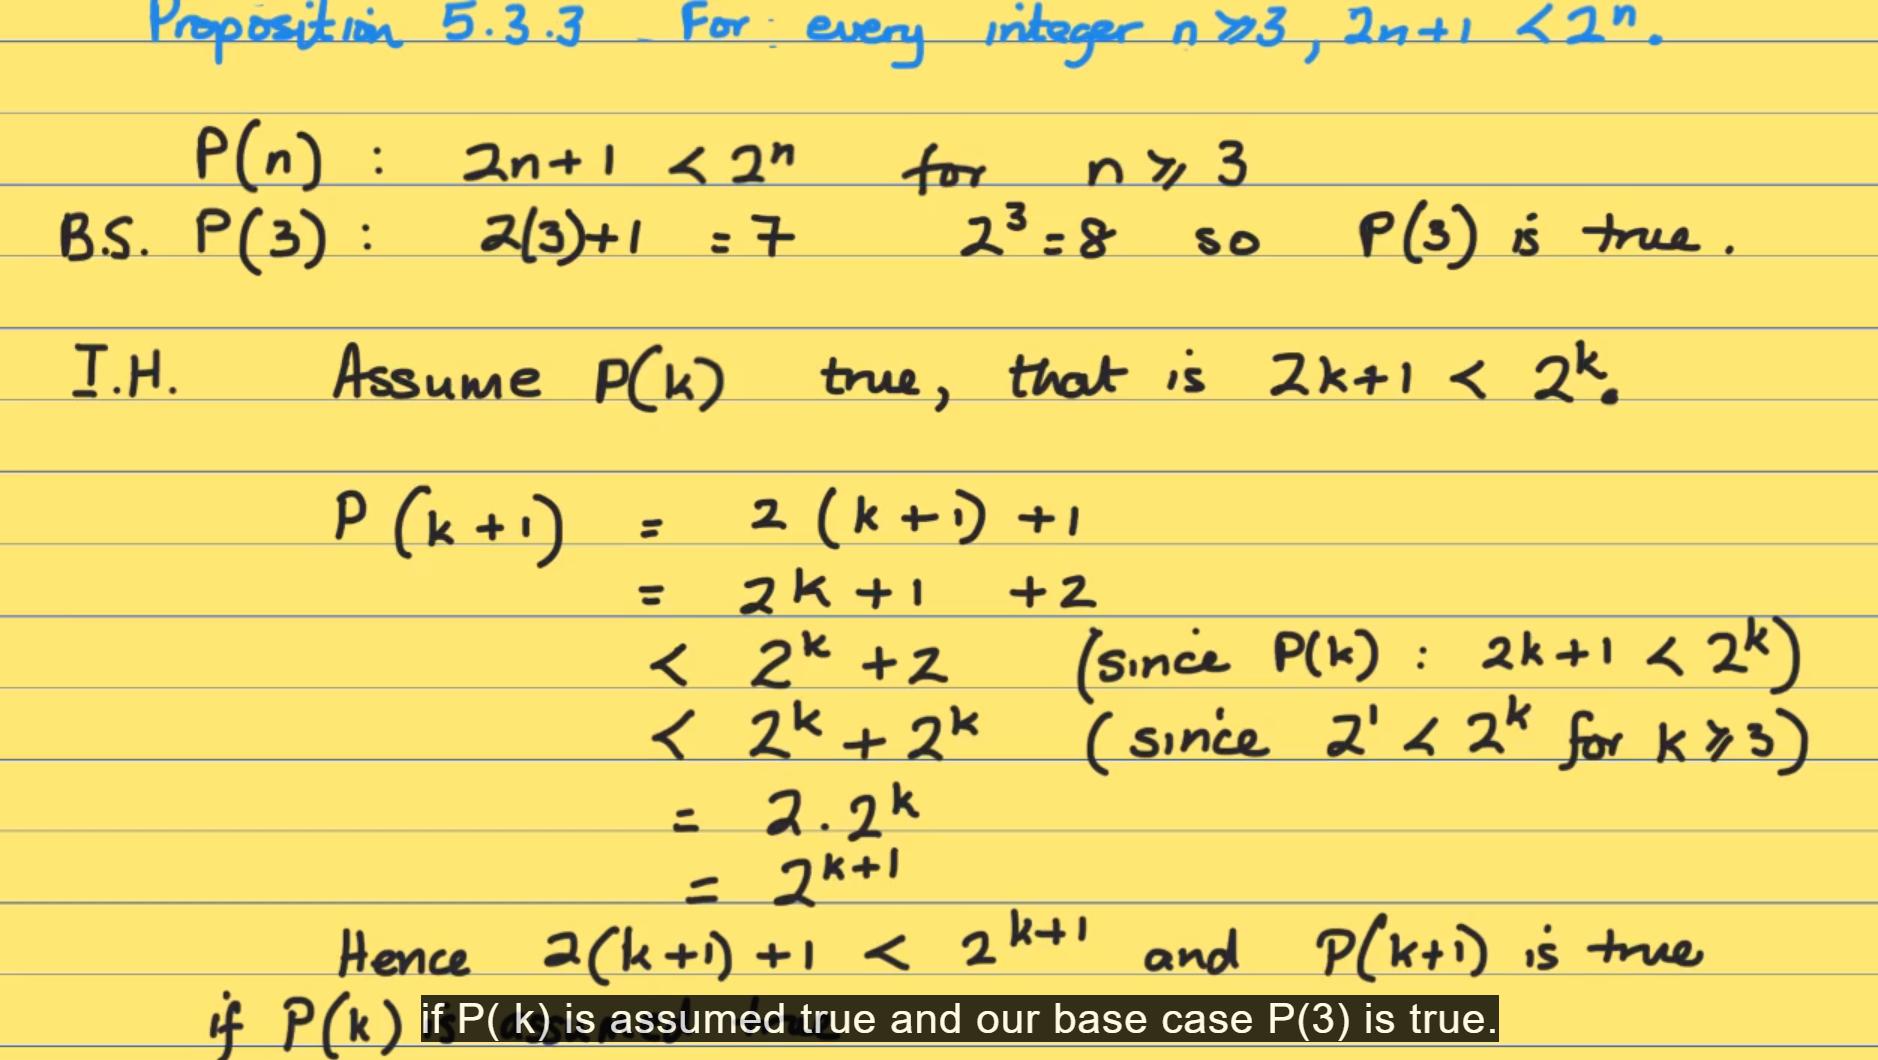 Proposition 5.3.3 - For every integer n ⩾ 3, 2n+1 < 2ⁿ.
P(n) : 2n+1 < 2ⁿ for n ⩾ 3
B.S. P(3) : 2(3)+1 = 7 2³ = 8 so P(3) is true.
I.H. Assume P(k) true, that is 2k+1 < 2ᵏ.
P(k+1) = 2(k+1)+1
= 2k+1 +2
< 2ᵏ+2 (since P(k) : 2k+1 < 2ᵏ)
< 2ᵏ+2ᵏ (since 2¹ < 2ᵏ for k ⩾ 3)
= 2.2ᵏ
= 2ᵏ⁺¹
Hence 2(k+1)+1 < 2ᵏ⁺¹ and P(k+1) is true
if P(k)
if P( k) is assumed true and our base case P(3) is true.